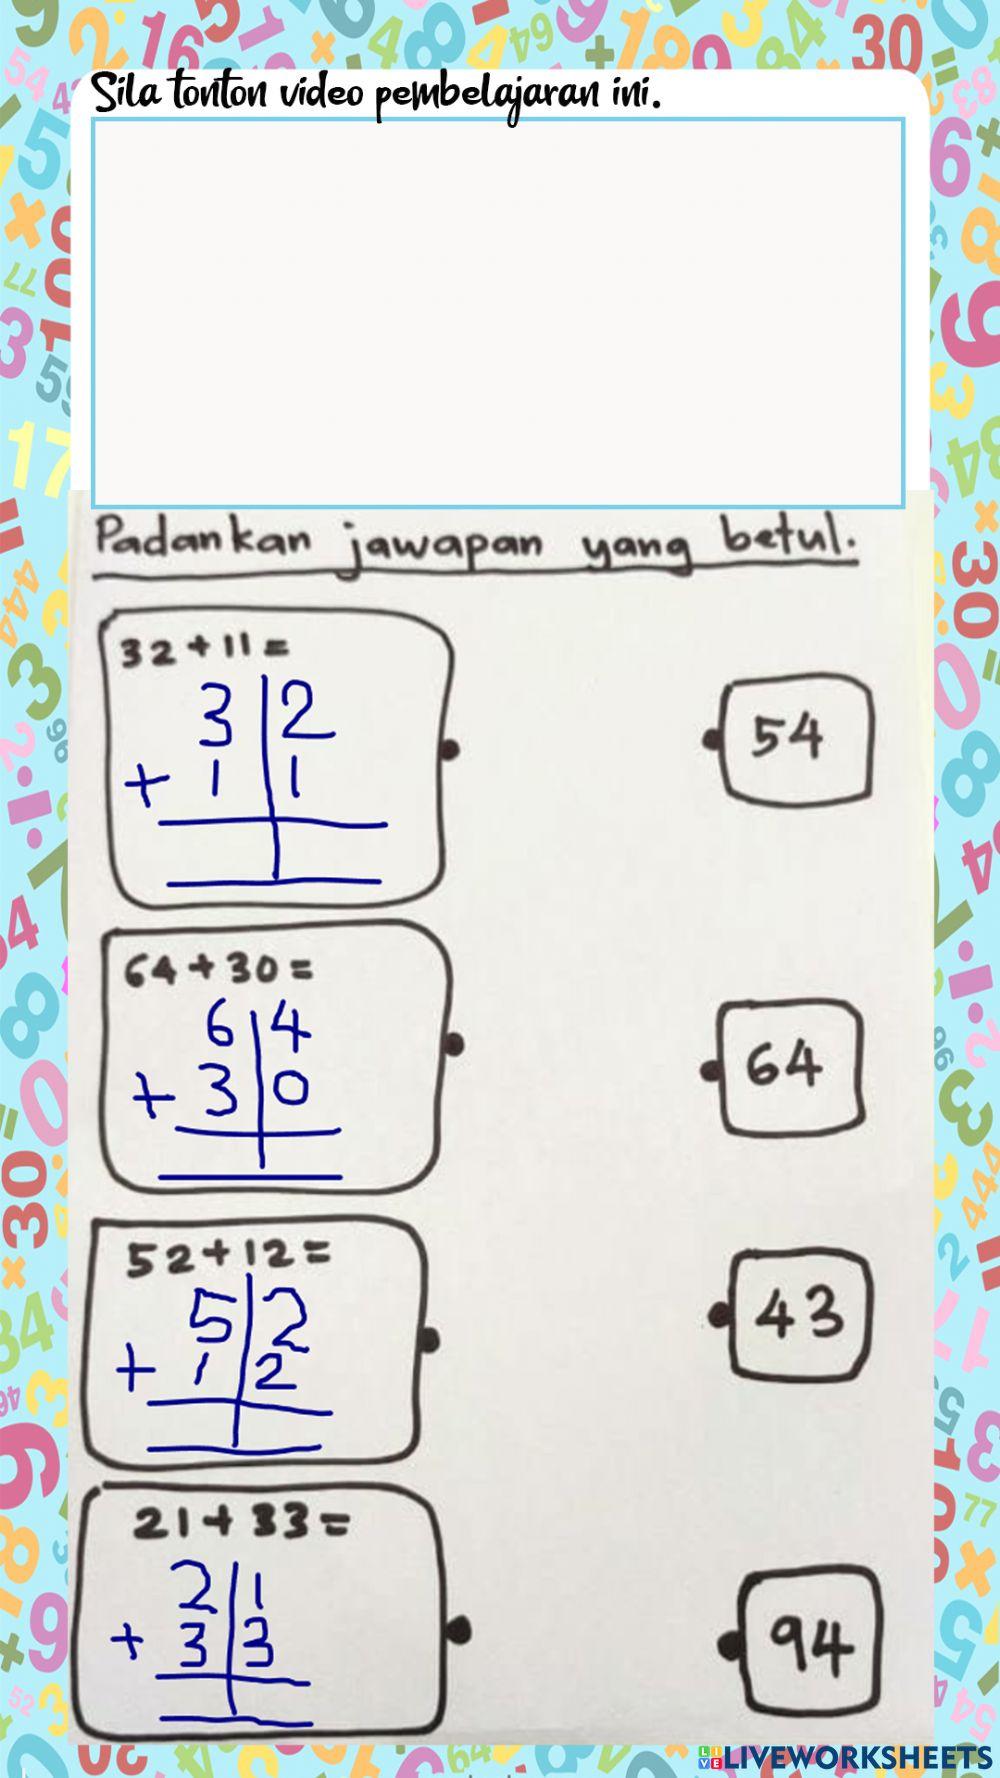 Sila tonton video pembelajaran ini.
Padankan jawapan yang betul.
32+11=
3 2
+ 1 1
54
64+30=
6 4
+ 3 0
64
52+12=
5 2
+ 1 2
43
21+33=
2 1
+ 3 3
94
LIVEWORKSHEETS